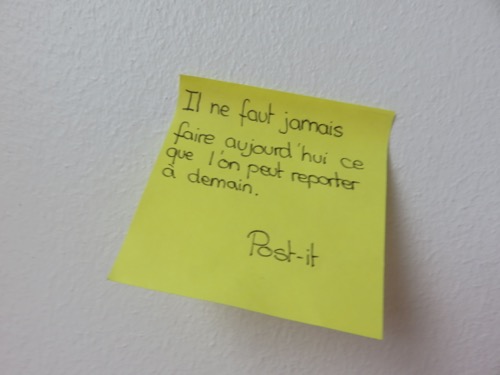 Il ne faut jamais
faire aujourd'hui ce
que l'on peut reporter
à demain.
Post-it